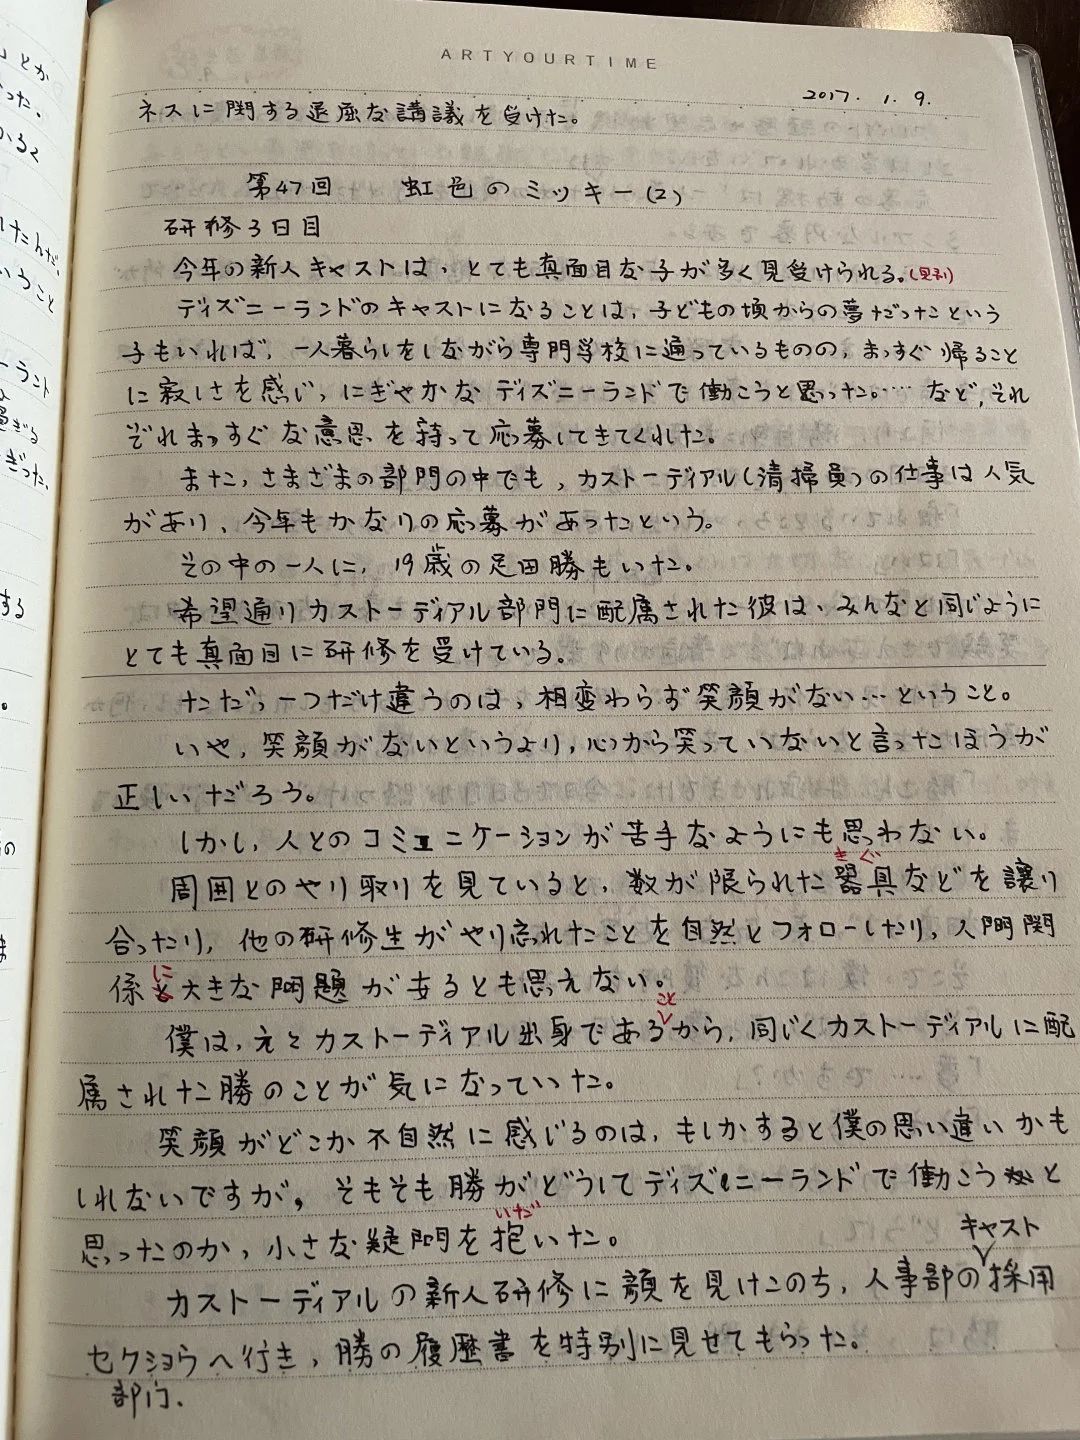 ARTYOURTIME
2017. 1. 9.
ネスに関する退屈な講議を受けた。
第47回 虹色のミッキー(2)
研修3日目
今年の新人キャストは、とても真面目な子が多く見受けられる。(見到)
ディズニーランドのキャストになることは、子どもの頃からの夢だったという
子もいれば、一人暮らしをしながら専門学校に通っているものの、まっすぐ帰ること
に寂しさを感じ、にぎやかなディズニーランドで働こうと思った。…… など、それ
ぞれまっすぐな意思を持って応募してきてくれた。
また、さまざまの部門の中でも、カストーディアル(清掃員)の仕事は人気
があり、今年もかなりの応募があったという。
その中の一人に、19歳の足田勝もいた。
希望通りカストーディアル部門に配属された彼は、みんなと同じように
とても真面目に研修を受けている。
ただ、一つだけ違うのは、相変わらず笑顔がない…ということ。
いや、笑顔がないというより、心から笑っていないと言ったほうが
正しいだろう。
しかし、人とのコミュニケーションが苦手なようにも思わない。
きぐ
周囲とのやり取りを見ていると、数が限られた器具などを譲り
合ったり、他の研修生がやり忘れたことを自然とフォローしたり、人間関
に
係大きな問題があるとも思えない。
こと
僕は、元々カストーディアル出身であるから、同じくカストーディアルに配
属された勝のことが気になっていた。
笑顔がどこか不自然に感じるのは、もしかすると僕の思い違いかも
しれないですが。そもそも勝がどうしてディズニーランドで働こうと
いだ
思ったのか、小さな疑問を抱いた。
キャスト
カストーディアルの新人研修に顔を見けこのち、人事部の採用
セクショウへ行き、勝の履歴書を特別に見せてもらった。
部门.